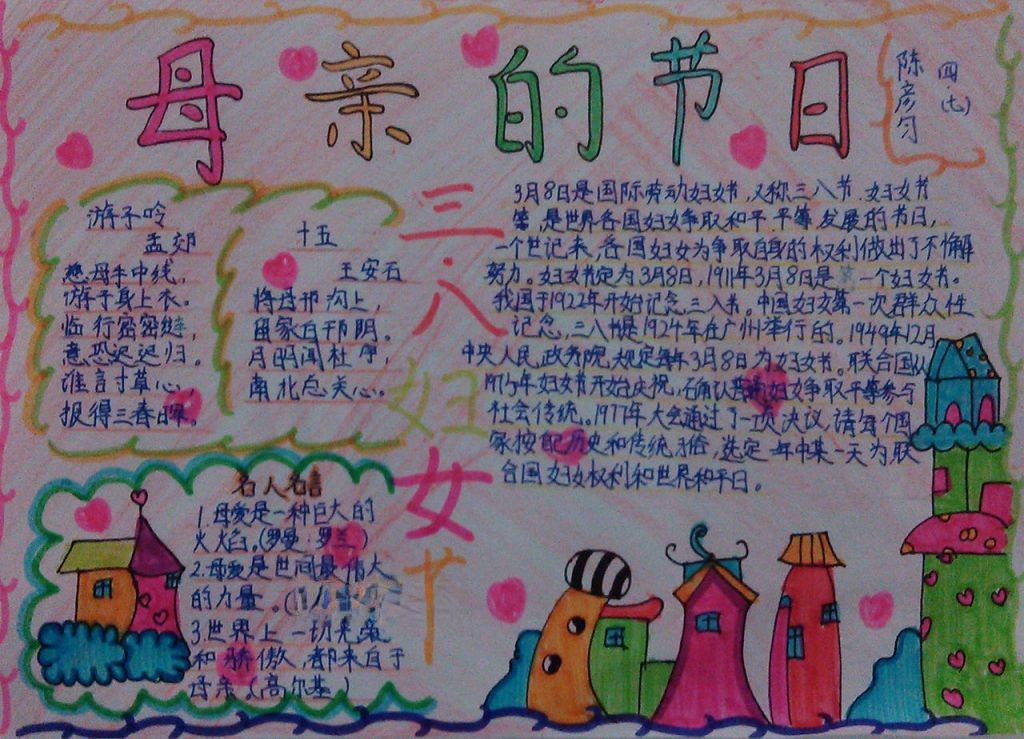 母亲的节日
四·(七)
陈彦匀
游子吟
孟郊
慈母手中线，
游子身上衣。
临行密密缝，
意恐迟迟归。
谁言寸草心，
报得三春晖。
十五
王安石
将母邗沟上，
留家白邗阴。
月明闻杜宇，
南北总关心。
三·八
妇
女
节
3月8日是国际劳动妇女节，又称三八节.妇女节
等，是世界各国妇女争取和平.平等.发展的节日，
一个世记来，各国妇女为争取自身的权利做出了不懈
努力。妇女节定为3月8日，1911年3月8日是第一个妇女节。
我国于1922年开始记念三八节。中国妇女第一次群众性
记念，三八节是1924年在广州举行的。1949年12月，
中央人民政务院规定每年3月8日为妇女节。联合国从
1975年妇女节开始庆祝，确认普通妇女争取平等参与
社会传统。1977年大会通过了一项决议，请每个国
家按配历史和传统习俗，选定一年中某一天为联
合国妇女权利和世界和平日。
名人名言
1.母爱是一种巨大的
火焰。(罗曼·罗兰)
2.母爱是世间最伟大
的力量。(
3.世界上一切光荣
和骄傲，都来自于
母亲。(高尔基)